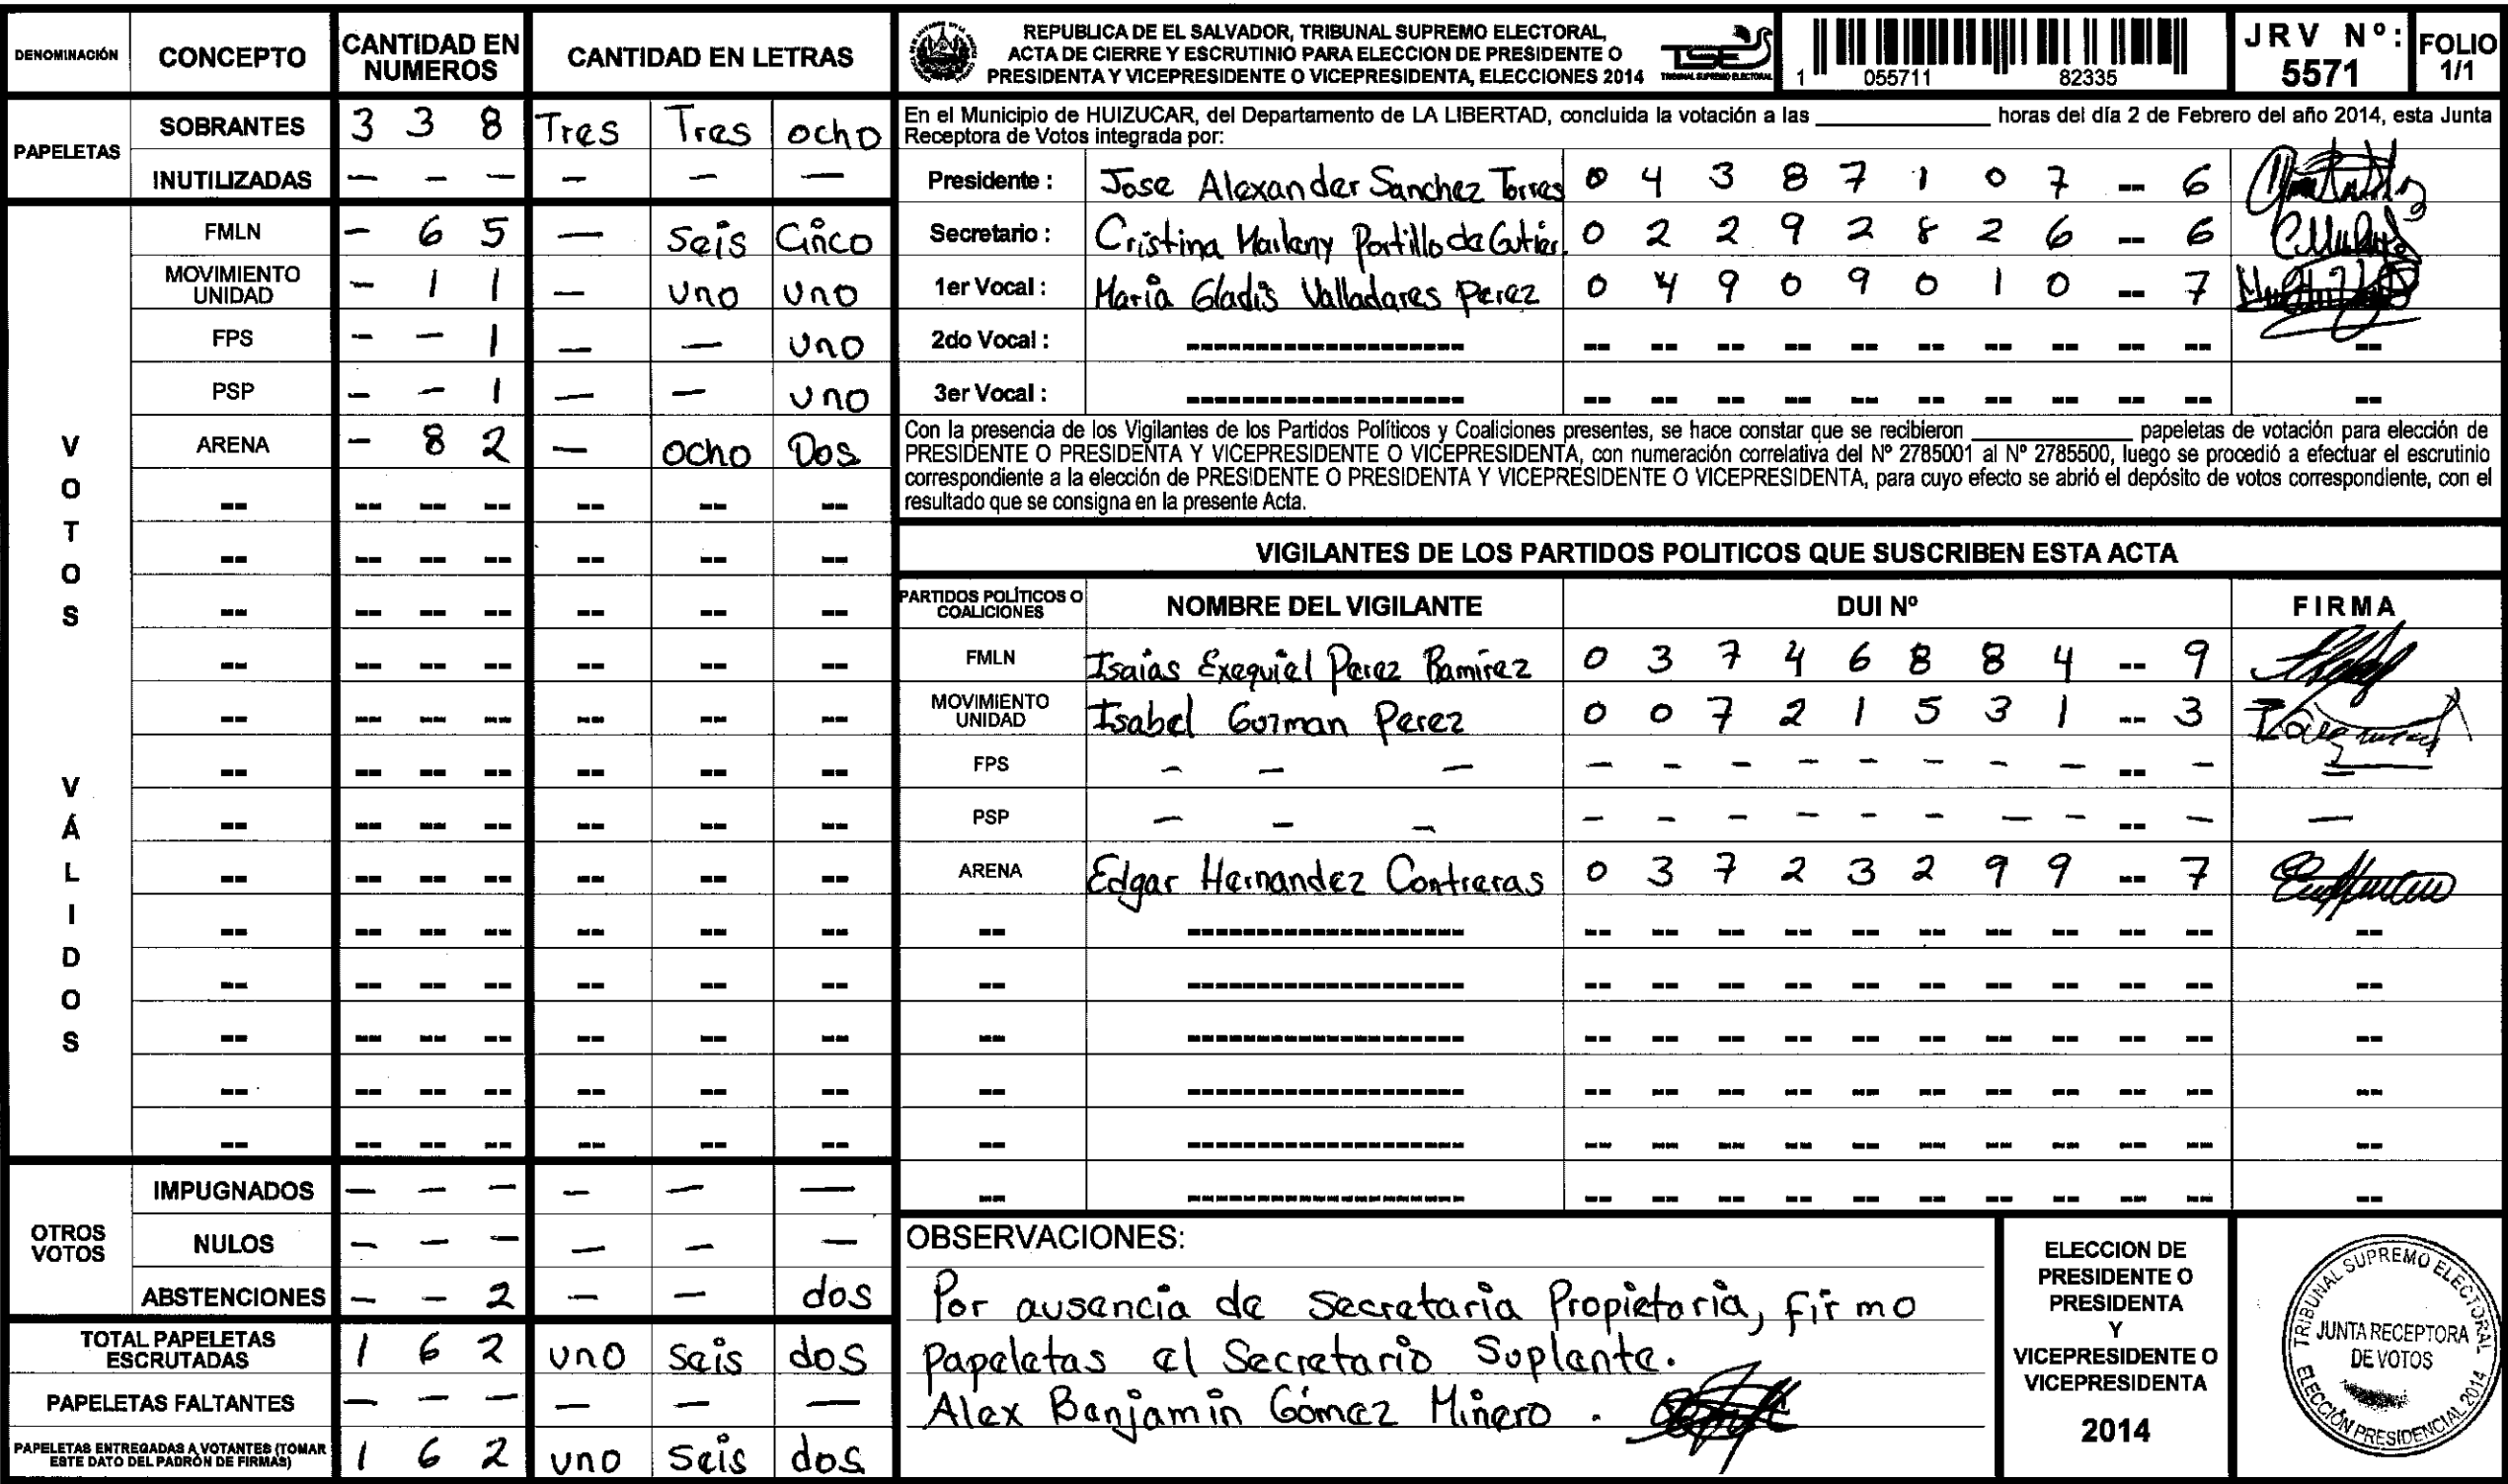 DENOMINACIÓN CONCEPTO CANTIDAD EN NUMEROS CANTIDAD EN LETRAS
PAPELETAS
SOBRANTES 3 3 8 Tres Tres ocho
INUTILIZADAS — — — — — —
VOTOS VÁLIDOS
FMLN — 6 5 — Seis Cinco
MOVIMIENTO UNIDAD — 1 1 — uno uno
FPS — — 1 — — uno
PSP — — 1 — — uno
ARENA — 8 2 — ocho Dos
OTROS VOTOS
IMPUGNADOS — — — — — —
NULOS — — — — — —
ABSTENCIONES — — 2 — — dos
TOTAL PAPELETAS ESCRUTADAS 1 6 2 uno seis dos
PAPELETAS FALTANTES — — — — — —
PAPELETAS ENTREGADAS A VOTANTES (TOMAR ESTE DATO DEL PADRÓN DE FIRMAS) 1 6 2 uno seis dos
REPUBLICA DE EL SALVADOR, TRIBUNAL SUPREMO ELECTORAL,
ACTA DE CIERRE Y ESCRUTINIO PARA ELECCION DE PRESIDENTE O
PRESIDENTA Y VICEPRESIDENTE O VICEPRESIDENTA, ELECCIONES 2014
TSE
TRIBUNAL SUPREMO ELECTORAL
1 055711 82335
JRV Nº: 5571
FOLIO 1/1
En el Municipio de HUIZUCAR, del Departamento de LA LIBERTAD, concluida la votación a las ____________ horas del día 2 de Febrero del año 2014, esta Junta
Receptora de Votos integrada por:
Presidente : Jose Alexander Sanchez Torres 0 4 3 8 7 1 0 7 -- 6
Secretario : Cristina Marleny Portillo de Gutier. 0 2 2 9 2 8 2 6 -- 6
1er Vocal : Maria Gladis Valladares Perez 0 4 9 0 9 0 1 0 -- 7
2do Vocal :
3er Vocal :
Con la presencia de los Vigilantes de los Partidos Políticos y Coaliciones presentes, se hace constar que se recibieron ____________ papeletas de votación para elección de
PRESIDENTE O PRESIDENTA Y VICEPRESIDENTE O VICEPRESIDENTA, con numeración correlativa del Nº 2785001 al Nº 2785500, luego se procedió a efectuar el escrutinio
correspondiente a la elección de PRESIDENTE O PRESIDENTA Y VICEPRESIDENTE O VICEPRESIDENTA, para cuyo efecto se abrió el depósito de votos correspondiente, con el
resultado que se consigna en la presente Acta.
VIGILANTES DE LOS PARTIDOS POLITICOS QUE SUSCRIBEN ESTA ACTA
PARTIDOS POLÍTICOS O COALICIONES NOMBRE DEL VIGILANTE DUI Nº FIRMA
FMLN Isaias Exequiel Perez Ramirez 0 3 7 4 6 8 8 4 -- 9
MOVIMIENTO UNIDAD Isabel Guzman Perez 0 0 7 2 1 5 3 1 -- 3
FPS — — — — — — — — — — — -- —
PSP — — — — — — — — — — — -- — —
ARENA Edgar Hernandez Contreras 0 3 7 2 3 2 9 9 -- 7
OBSERVACIONES:
Por ausencia de Secretaria Propietaria, firmo
Papeletas el Secretario Suplente.
Alex Benjamin Gómez Miñero .
ELECCION DE
PRESIDENTE O
PRESIDENTA
Y
VICEPRESIDENTE O
VICEPRESIDENTA
2014
TRIBUNAL SUPREMO ELECTORAL
JUNTA RECEPTORA
DE VOTOS
ELECCIÓN PRESIDENCIAL 2014